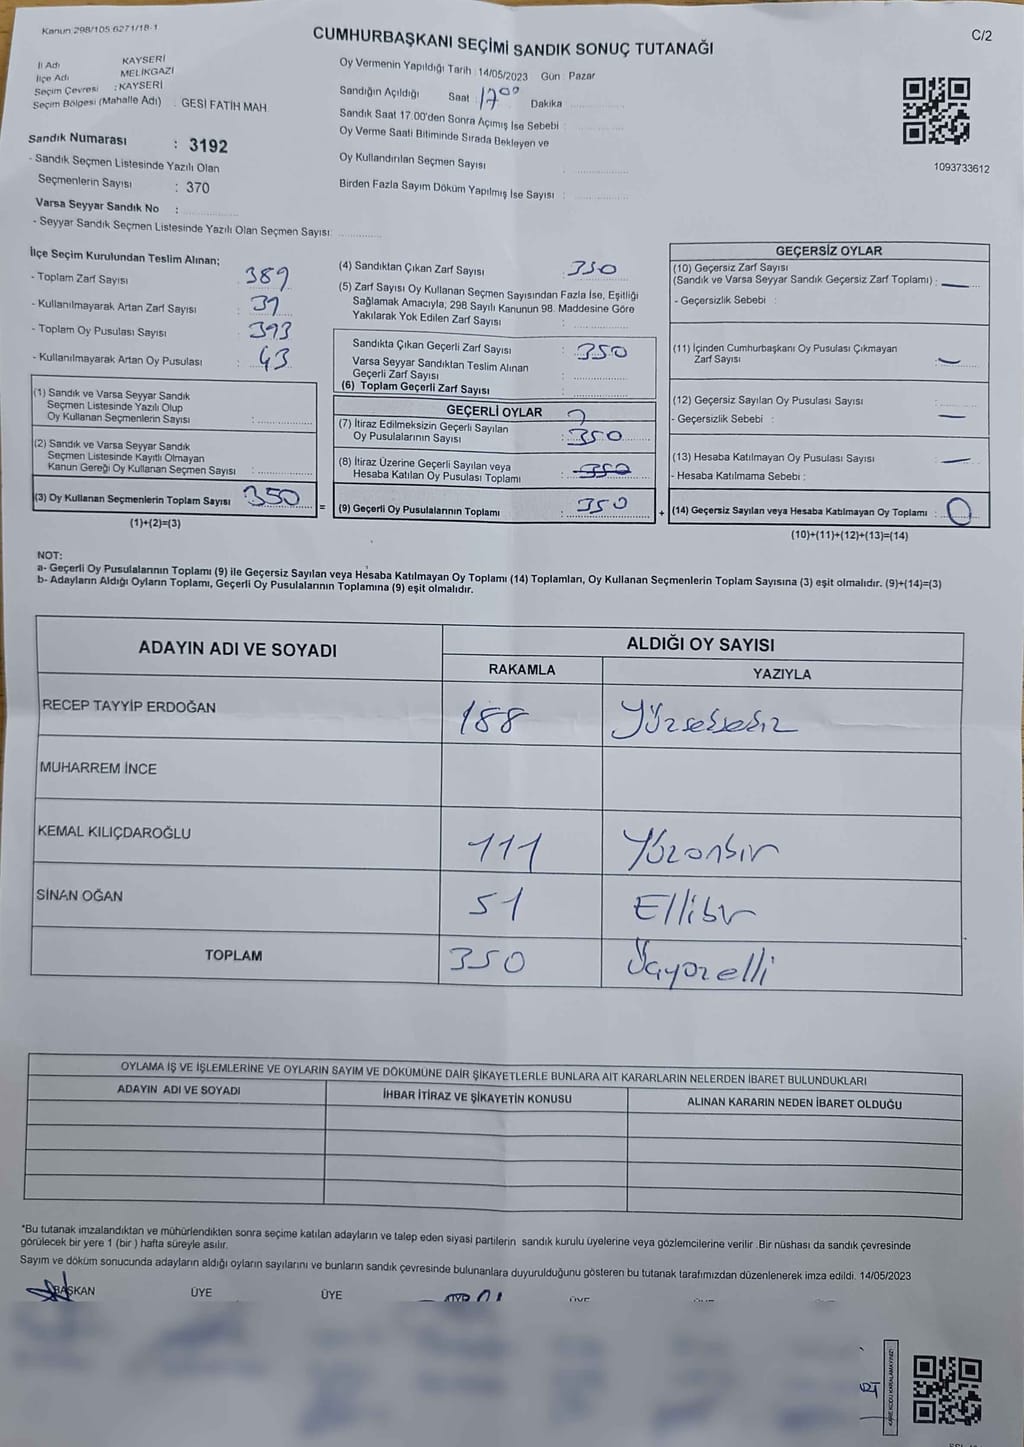 Kanun:298/105 6271/18-1
C/2
CUMHURBAŞKANI SEÇİMİ SANDIK SONUÇ TUTANAĞI
İl Adı KAYSERİ
İlçe Adı MELİKGAZİ
Seçim Çevresi : KAYSERİ
Seçim Bölgesi (Mahalle Adı) : GESİ FATİH MAH.
Sandık Numarası : 3192
- Sandık Seçmen Listesinde Yazılı Olan
Seçmenlerin Sayısı : 370
Varsa Seyyar Sandık No :
- Seyyar Sandık Seçmen Listesinde Yazılı Olan Seçmen Sayısı:
Oy Vermenin Yapıldığı Tarih : 14/05/2023 Gün : Pazar
Sandığın Açıldığı Saat : 17 00 Dakika
Sandık Saat 17.00'den Sonra Açımış İse Sebebi :
Oy Verme Saati Bitiminde Sırada Bekleyen ve
Oy Kullandırılan Seçmen Sayısı :
Birden Fazla Sayım Döküm Yapılmış İse Sayısı :
1093733612
İlçe Seçim Kurulundan Teslim Alınan;
- Toplam Zarf Sayısı : 389
- Kullanılmayarak Artan Zarf Sayısı : 39
- Toplam Oy Pusulası Sayısı : 393
- Kullanılmayarak Artan Oy Pusulası : 43
(1) Sandık ve Varsa Seyyar Sandık
Seçmen Listesinde Yazılı Olup
Oy Kullanan Seçmenlerin Sayısı :
(2) Sandık ve Varsa Seyyar Sandık
Seçmen Listesinde Kayıtlı Olmayan
Kanun Gereği Oy Kullanan Seçmen Sayısı :
(3) Oy Kullanan Seçmenlerin Toplam Sayısı : 350
(1)+(2)=(3)
(4) Sandıktan Çıkan Zarf Sayısı : 350
(5) Zarf Sayısı Oy Kullanan Seçmen Sayısından Fazla İse, Eşitliği
Sağlamak Amacıyla; 298 Sayılı Kanunun 98. Maddesine Göre
Yakılarak Yok Edilen Zarf Sayısı :
Sandıkta Çıkan Geçerli Zarf Sayısı : 350
Varsa Seyyar Sandıktan Teslim Alınan
Geçerli Zarf Sayısı :
(6) Toplam Geçerli Zarf Sayısı :
GEÇERLİ OYLAR
(7) İtiraz Edilmeksizin Geçerli Sayılan
Oy Pusulalarının Sayısı : 350
(8) İtiraz Üzerine Geçerli Sayılan veya
Hesaba Katılan Oy Pusulası Toplamı : 350
= (9) Geçerli Oy Pusulalarının Toplamı : 350
GEÇERSİZ OYLAR
(10) Geçersiz Zarf Sayısı
(Sandık ve Varsa Seyyar Sandık Geçersiz Zarf Toplamı) : —
- Geçersizlik Sebebi :
(11) İçinden Cumhurbaşkanı Oy Pusulası Çıkmayan
Zarf Sayısı : —
(12) Geçersiz Sayılan Oy Pusulası Sayısı :
- Geçersizlik Sebebi : —
(13) Hesaba Katılmayan Oy Pusulası Sayısı : —
- Hesaba Katılmama Sebebi :
+ (14) Geçersiz Sayılan veya Hesaba Katılmayan Oy Toplamı : 0
(10)+(11)+(12)+(13)=(14)
NOT:
a- Geçerli Oy Pusulalarının Toplamı (9) ile Geçersiz Sayılan veya Hesaba Katılmayan Oy Toplamı (14) Toplamları, Oy Kullanan Seçmenlerin Toplam Sayısına (3) eşit olmalıdır. (9)+(14)=(3)
b- Adayların Aldığı Oyların Toplamı, Geçerli Oy Pusulalarının Toplamına (9) eşit olmalıdır.
ADAYIN ADI VE SOYADI
ALDIĞI OY SAYISI
RAKAMLA YAZIYLA
RECEP TAYYİP ERDOĞAN 188 Yüzseksensekiz
MUHARREM İNCE
KEMAL KILIÇDAROĞLU 111 Yüzonbir
SİNAN OĞAN 51 Ellibir
TOPLAM 350 Üçyüzelli
OYLAMA İŞ VE İŞLEMLERİNE VE OYLARIN SAYIM VE DÖKÜMÜNE DAİR ŞİKAYETLERLE BUNLARA AİT KARARLARIN NELERDEN İBARET BULUNDUKLARI
ADAYIN ADI VE SOYADI İHBAR İTİRAZ VE ŞİKAYETİN KONUSU ALINAN KARARIN NEDEN İBARET OLDUĞU
*Bu tutanak imzalandıktan ve mühürlendikten sonra seçime katılan adayların ve talep eden siyasi partilerin sandık kurulu üyelerine veya gözlemcilerine verilir .Bir nüshası da sandık çevresinde
görülecek bir yere 1 (bir ) hafta süreyle asılır.
Sayım ve döküm sonucunda adayların aldığı oyların sayılarını ve bunların sandık çevresinde bulunanlara duyurulduğunu gösteren bu tutanak tarafımızdan düzenlenerek imza edildi. 14/05/2023
BAŞKAN ÜYE ÜYE
KARE KODU KARALAMAYINIZ!